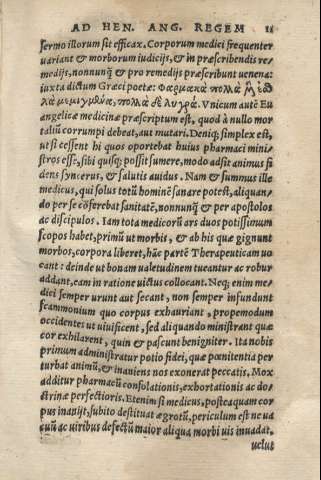 AD HEN. ANG. REGEM 11
sermo illorum sit efficax. Corporum medici frequenter
variant & morborum iudicijs, & in præscribendis re-
medijs, nonnunq̃ & pro remedijs præscribunt uenena:
iuxta dictum Græci poëtæ: Φαρμακα πολλὰ μὲν ἐσθ
λὰ μεμιγμένα, πολλὰ δὲ λυγρά. Vnicum autẽ Eu
angelicæ medicinæ præscriptum est, quod à nullo mor
talium corrumpi debeat, aut mutari. Deniq; simplex est,
ut si cessent hi quos oportebat huius pharmaci mini-
stros esse, sibi quisq; possit sumere, modo adsit animus fi
dens syncerus, & salutis auidus. Nam & summus ille
medicus, qui solus totũ hominẽ sanare potest, aliquan-
do per se cõferebat sanitatẽ, nonnunq̃ & per apostolos
ac discipulos. Iam tota medicorũ ars duos potissimum
scopos habet, primũ ut morbis, & ab his quæ gignunt
morbos, corpora liberet, hãc partẽ Therapeuticam uo
cant: deinde ut bonam ualetudinem tueantur ac robur
addant, eam in ratione uictus collocant. Neq; enim me-
dici semper urunt aut secant, non semper infundunt
scammonium quo corpus exhauriant, propemodum
occidentes ut uiuificent, sed aliquando ministrant quæ
cor exhilarent, quin & pascunt benigniter. Ita nobis
primum administratur potio fidei, quæ pœnitentia per
turbat animũ, & inaniens nos exonerat peccatis, Mox
additur pharmacũ consolationis, exhortationis ac do-
ctrinæ perfectioris. Etenim si medicus, posteaquam cor
pus inanijt, subito destituat ægrotũ, periculum est ne ua
cuũ ac uiribus defectũ maior aliqua morbi uis inuadat,
uelut